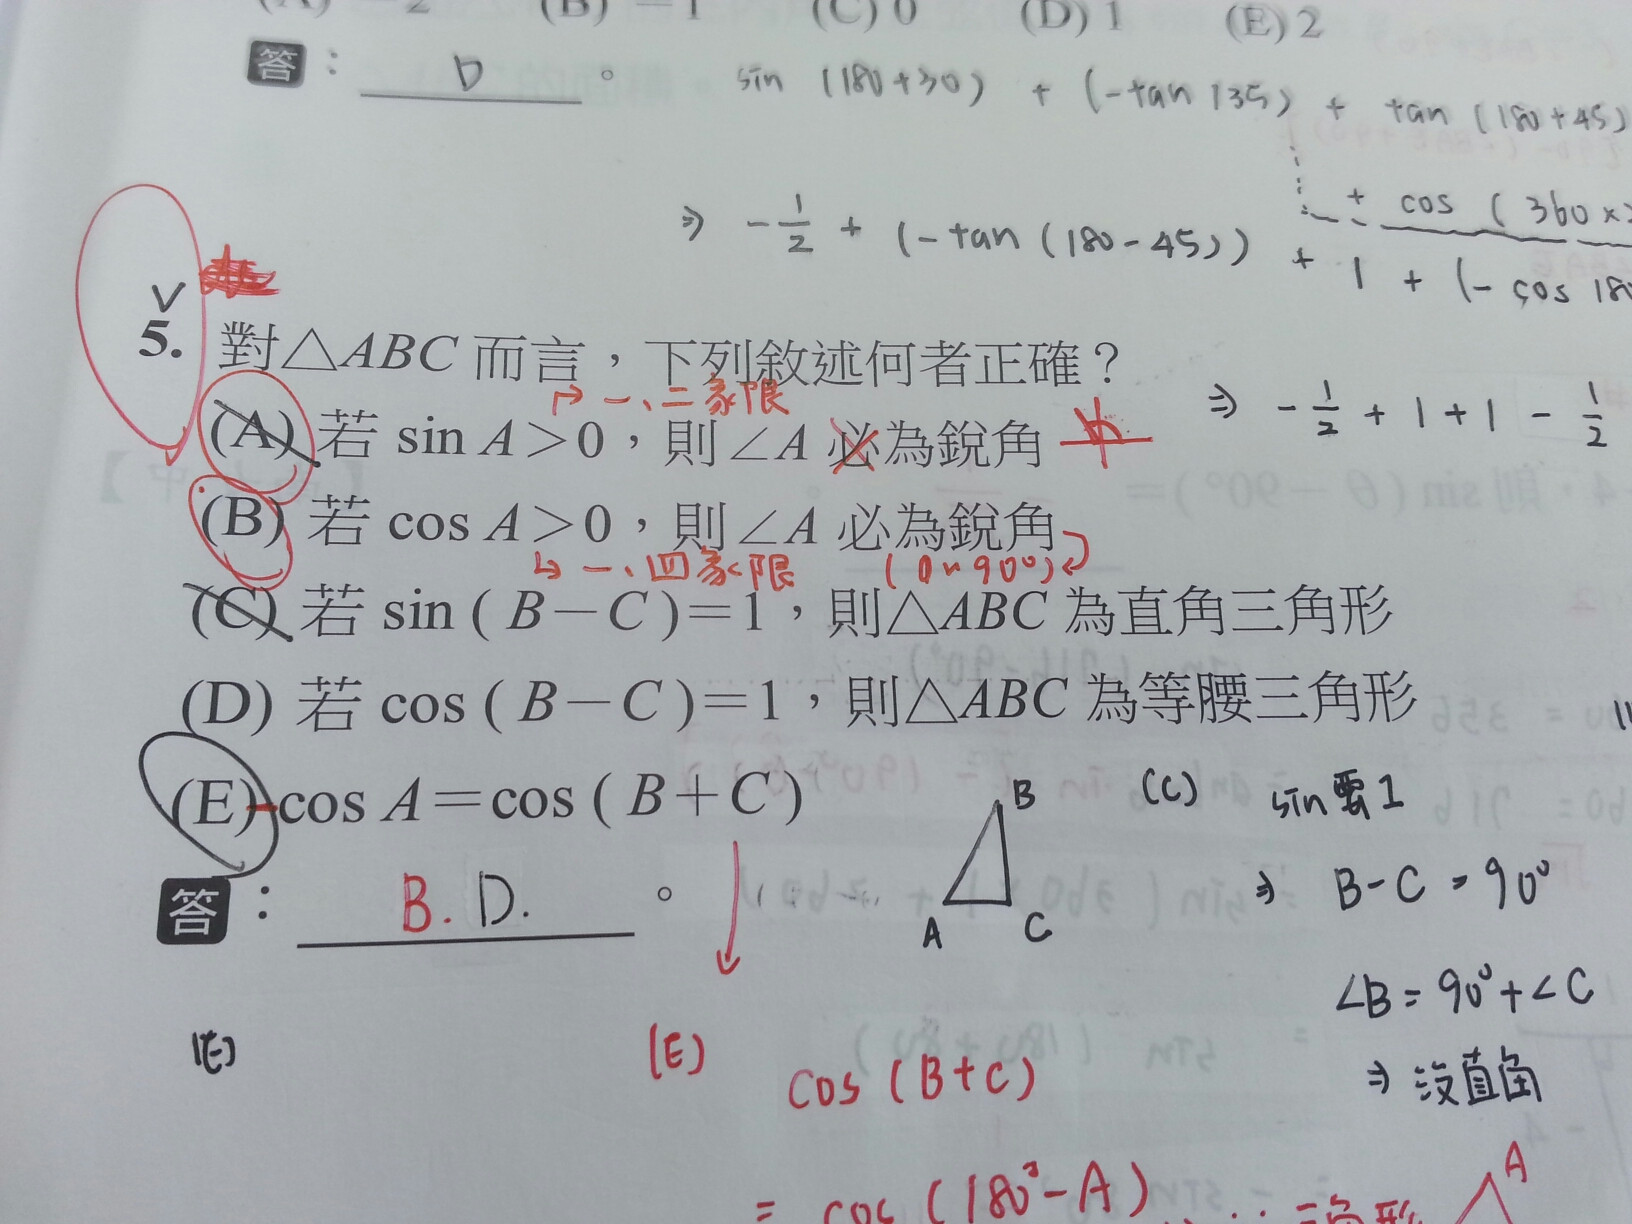 (A) −2 (B) −1 (C) 0 (D) 1 (E) 2
答： D 。 sin (180+30) + (-tan 135) + tan (180+45)
+ cos (360×
⇒ -1/2 + (-tan (180-45)) + 1 + (-cos 180
5. 對△ABC 而言，下列敘述何者正確？
→ 一、二象限
⇒ -1/2 + 1 + 1 - 1/2
(A) 若 sin A＞0，則∠A 必為銳角
(B) 若 cos A＞0，則∠A 必為銳角
→ 一、四象限 (0~90°)
(C) 若 sin ( B−C )=1，則△ABC 為直角三角形
(D) 若 cos ( B−C )=1，則△ABC 為等腰三角形
(E) cos A=cos ( B+C )
B (C) sin要1
答： B. D. 。 A C ⇒ B-C = 90°
∠B = 90°+∠C
⇒ 沒直角
(E) (E) cos (B+C)
= cos (180°-A) ∵ 三角形 A